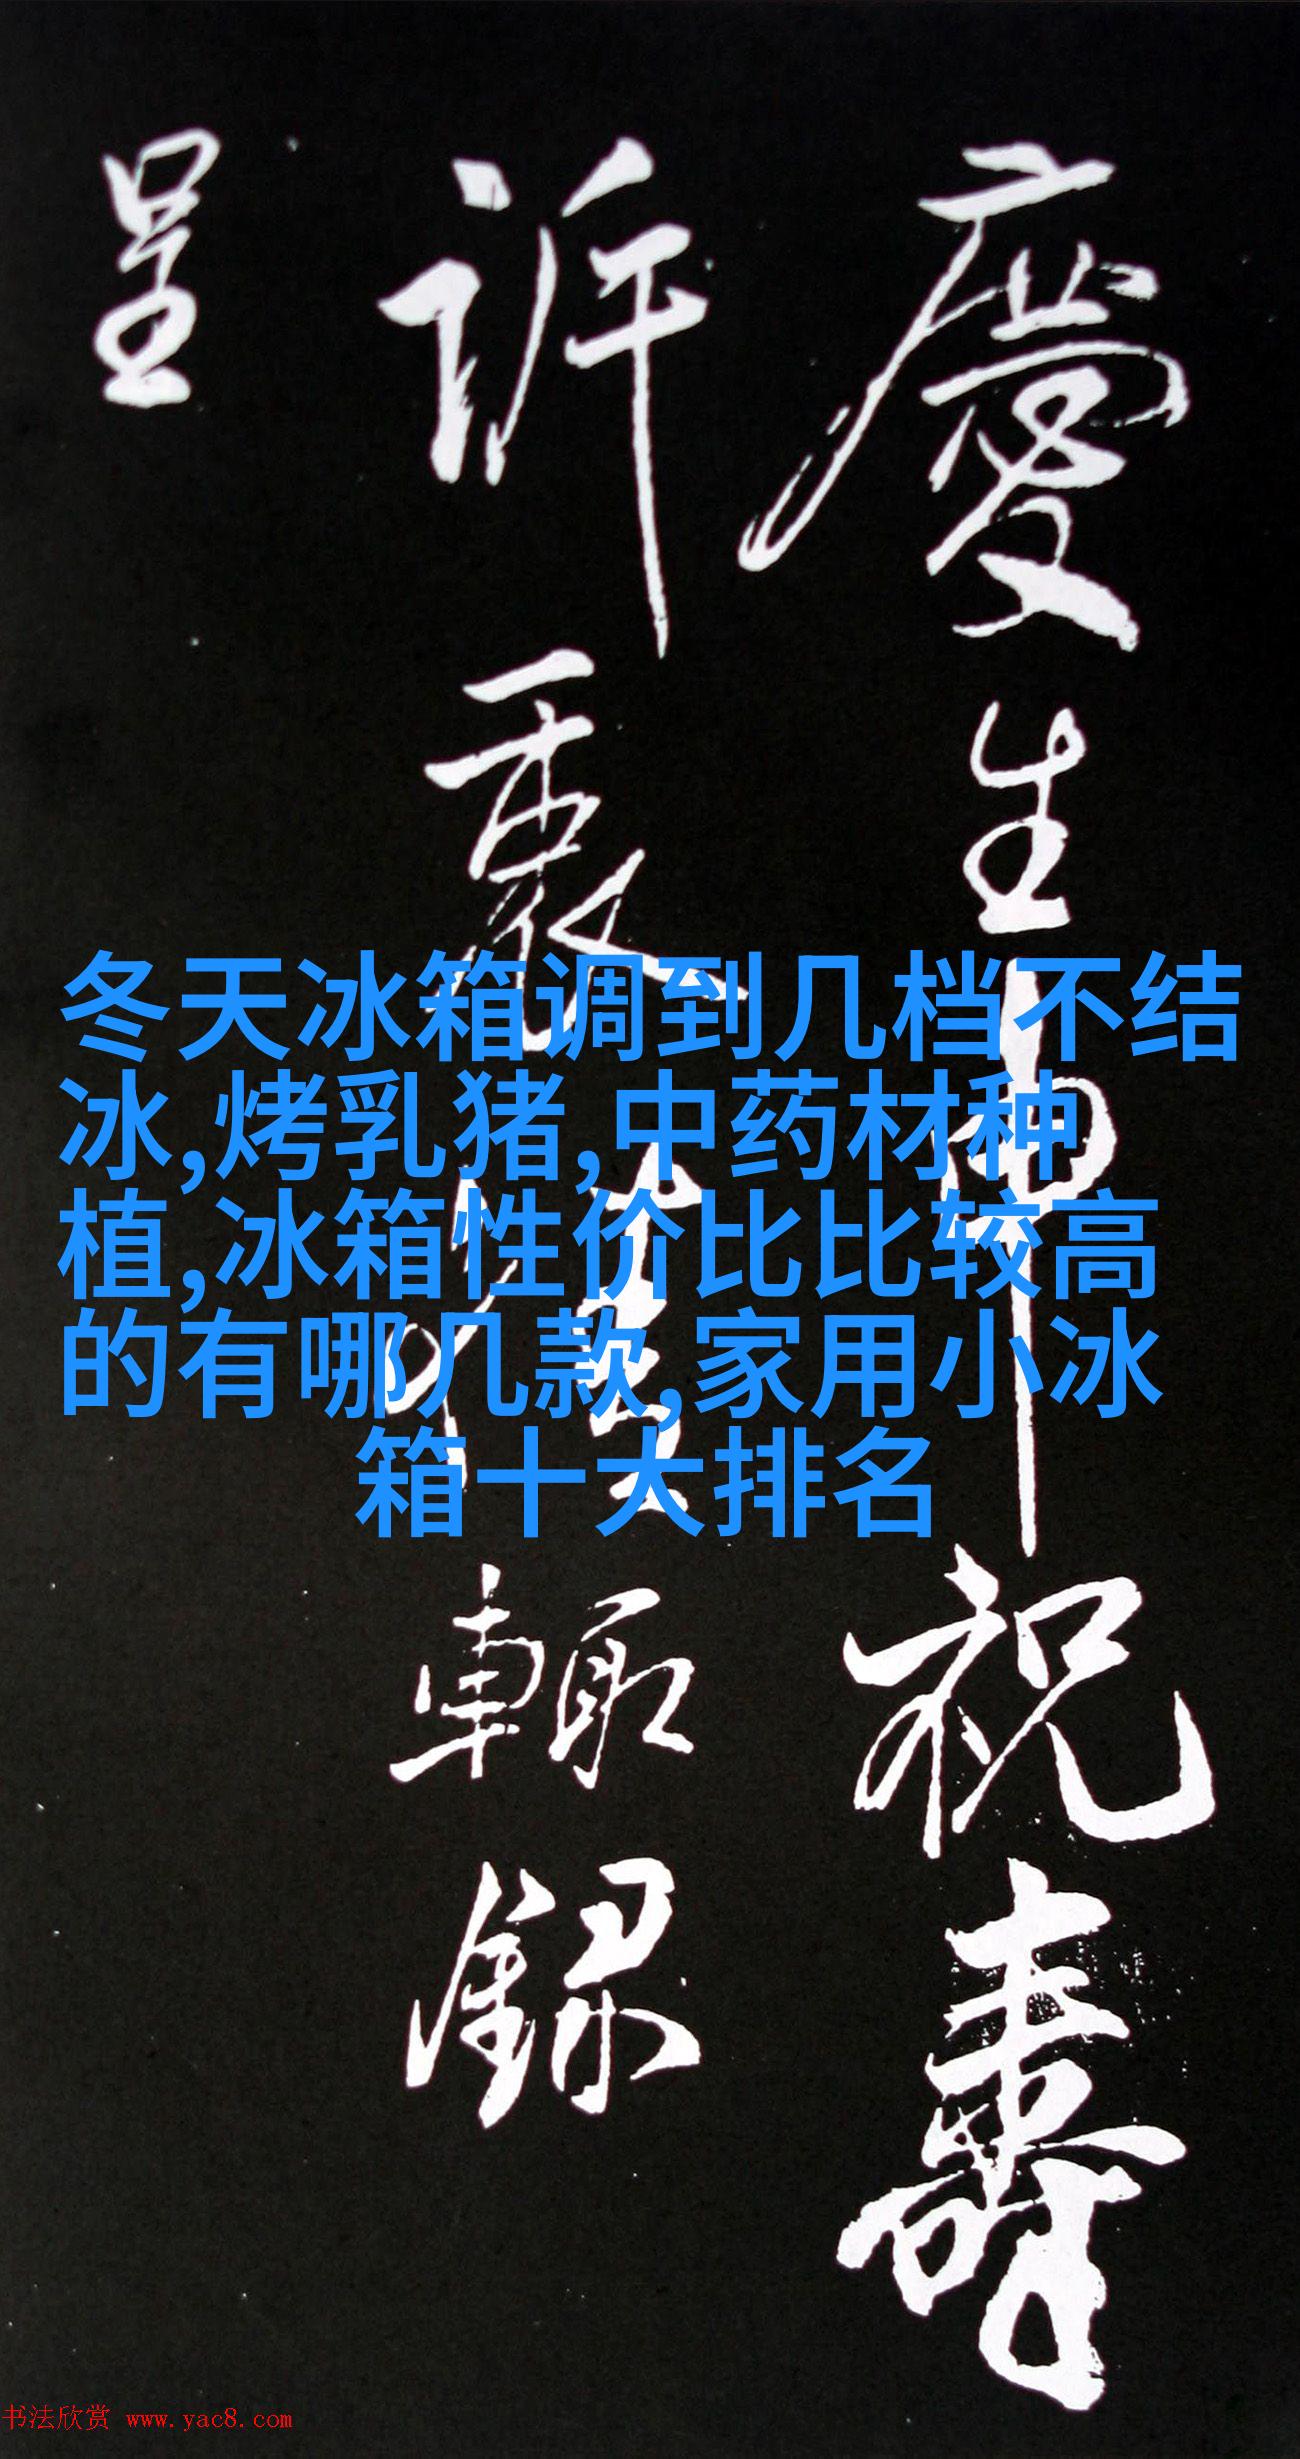 慶生申祝壽
訢衷謹輙録
呈
冬天冰箱调到几档不结
冰,烤乳猪,中药材种
植,冰箱性价比比较高
的有哪几款,家用小冰
箱十大排名
书法欣赏 www.yac8.com